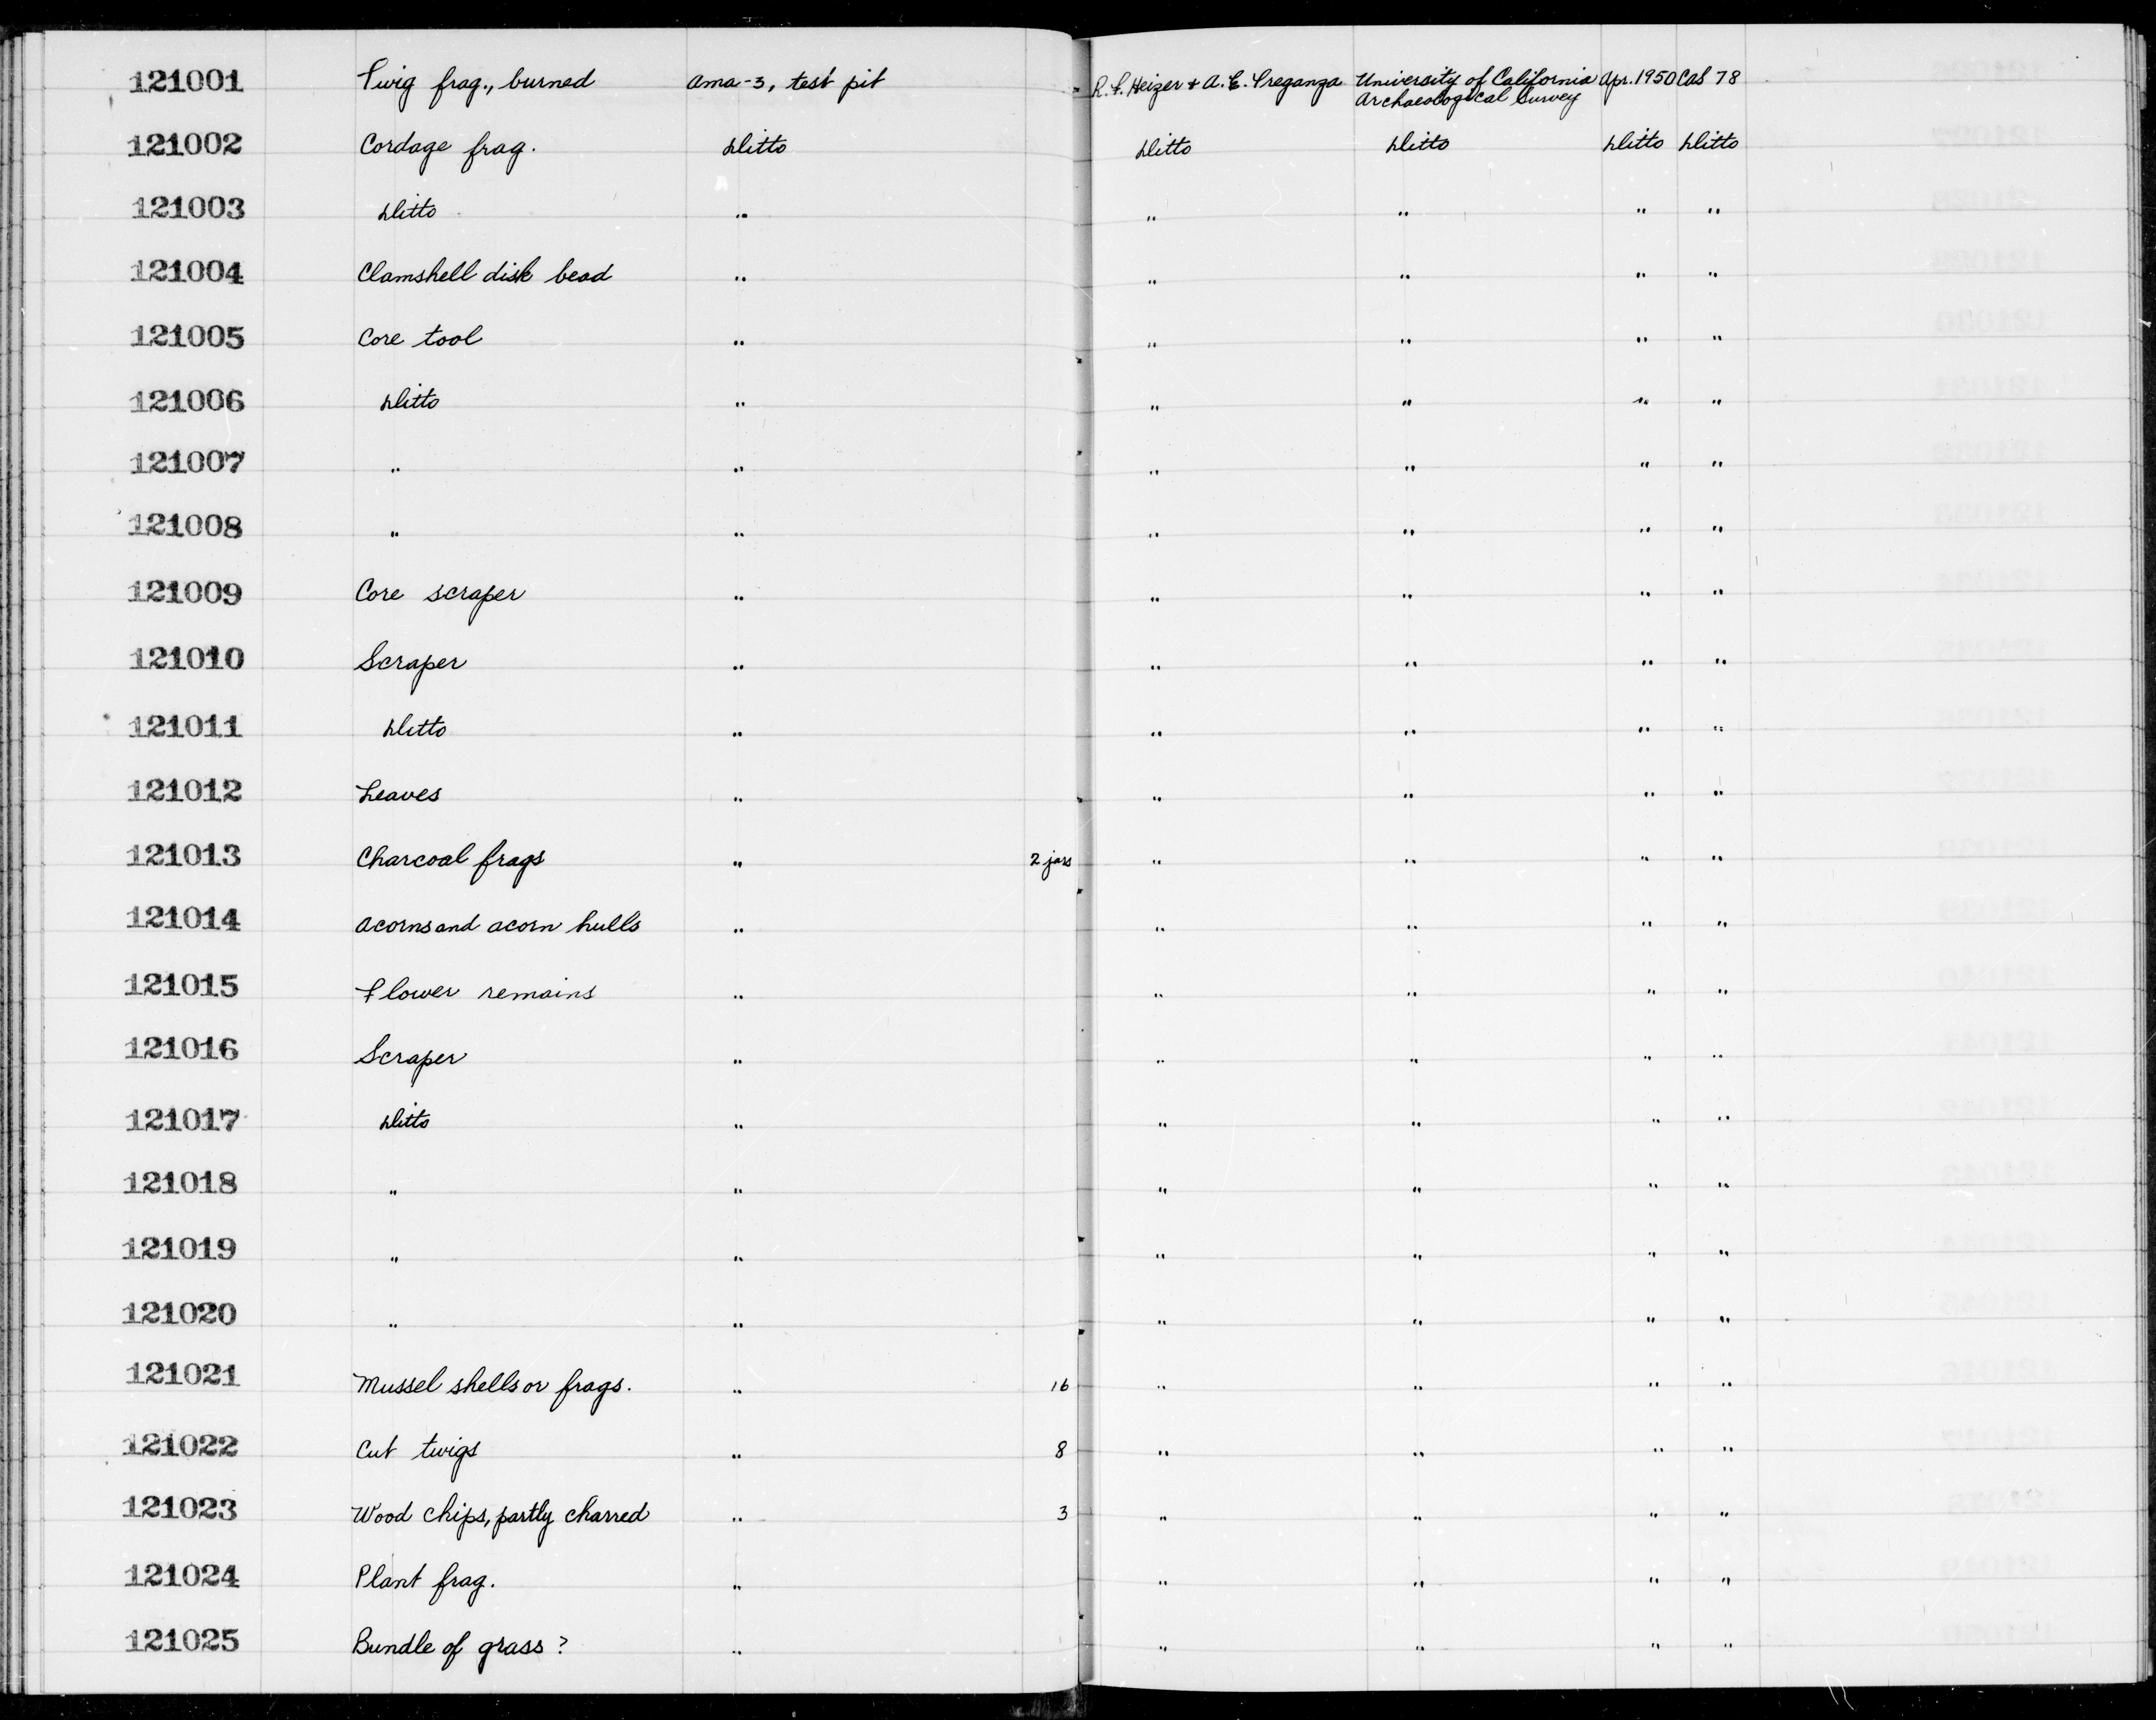 121001 Twig frag., burned Ama-3, test pit R. F. Heizer + A. E. Treganza University of California Apr. 1950 Cas 78
Archaeological Survey
121002 Cordage frag. Ditto Ditto Ditto Ditto Ditto
121003 Ditto " " " " "
121004 Clamshell disk bead " " " " "
121005 Core tool " " " " "
121006 Ditto " " " " "
121007 " " " " " "
121008 " " " " " "
121009 Core scraper " " " " "
121010 Scraper " " " " "
121011 Ditto " " " " "
121012 Leaves " " " " "
121013 Charcoal frags " 2 jars " " " "
121014 Acorns and acorn hulls " " " " "
121015 Flower remains " " " " "
121016 Scraper " " " " "
121017 Ditto " " " " "
121018 " " " " " "
121019 " " " " " "
121020 " " " " " "
121021 Mussel shells or frags. " 16 " " " "
121022 Cut twigs " 8 " " " "
121023 Wood chips, partly charred " 3 " " " "
121024 Plant frag. " " " " "
121025 Bundle of grass ? " " " " "